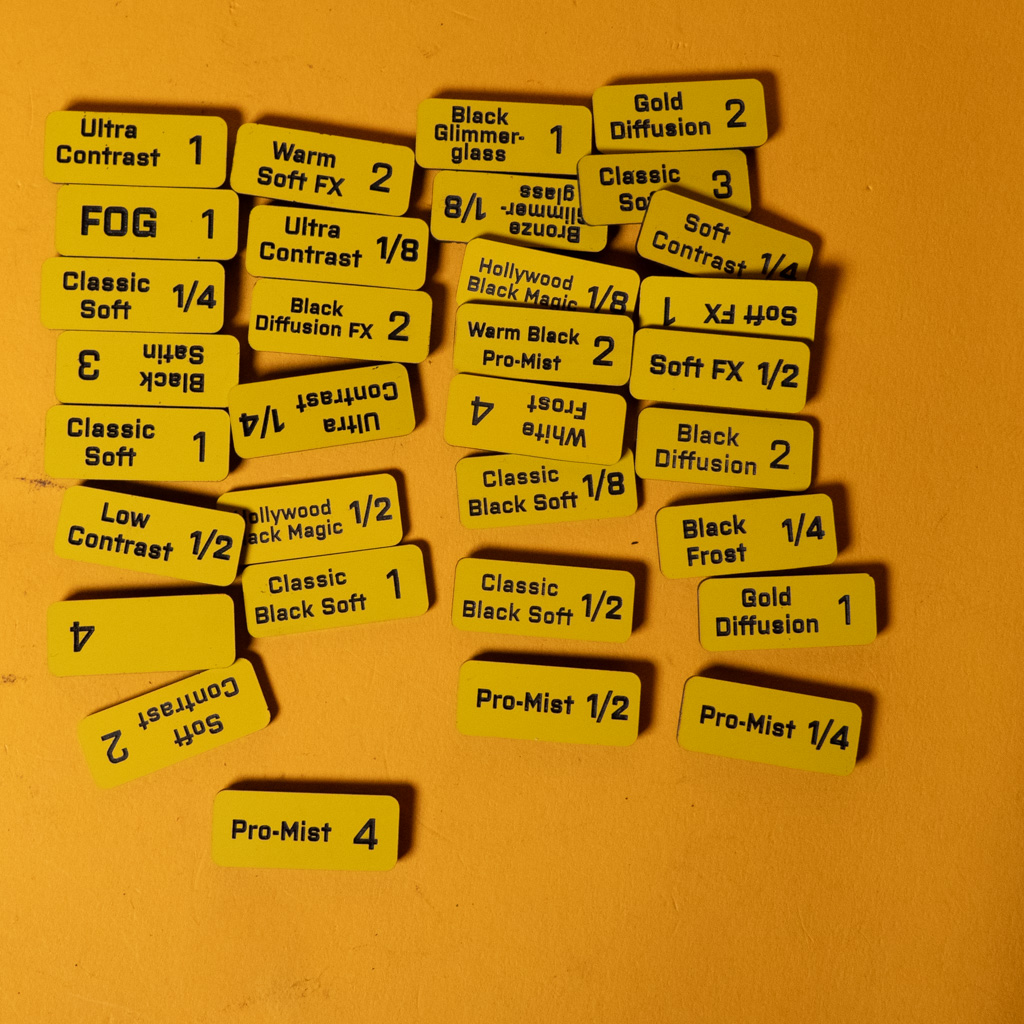 Ultra
Contrast 1
FOG 1
Classic
Soft 1/4
Black
Satin 3
Classic
Soft 1
Low
Contrast 1/2
4
Soft
Contrast 2
Warm
Soft FX 2
Ultra
Contrast 1/8
Black
Diffusion FX 2
Ultra
Contrast 1/4
ollywood
ack Magic 1/2
Classic
Black Soft 1
Pro-Mist 4
Black
Glimmer-
glass 1
Bronze
Glimmer-
glass 1/8
Hollywood
Black Magic 1/8
Warm Black
Pro-Mist 2
White
Frost 4
Classic
Black Soft 1/8
Classic
Black Soft 1/2
Pro-Mist 1/2
Gold
Diffusion 2
Classic
So 3
Soft
Contrast 1/4
Soft FX 1
Soft FX 1/2
Black
Diffusion 2
Black
Frost 1/4
Gold
Diffusion 1
Pro-Mist 1/4